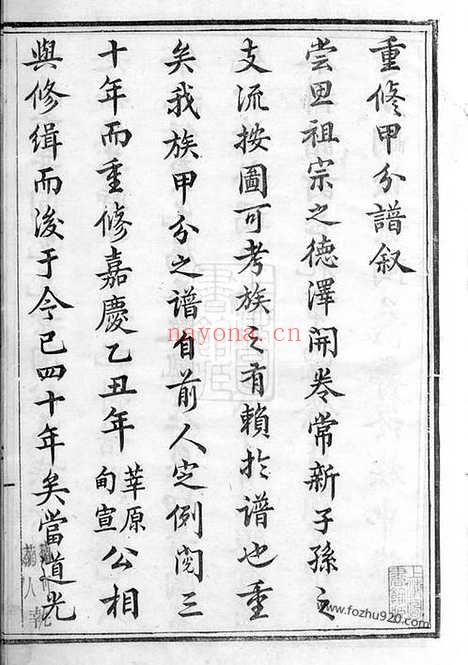 重修甲分譜叙
嘗思祖宗之德澤開卷常新子孫之
支流按圖可考族之有賴於譜也重
矣我族甲分之譜自前人定例閱三
十年而重修嘉慶乙丑年莘原甸宣公相
與修緝而後于今已四十年矣當道光
nayona.cn
www.fozhu920.com